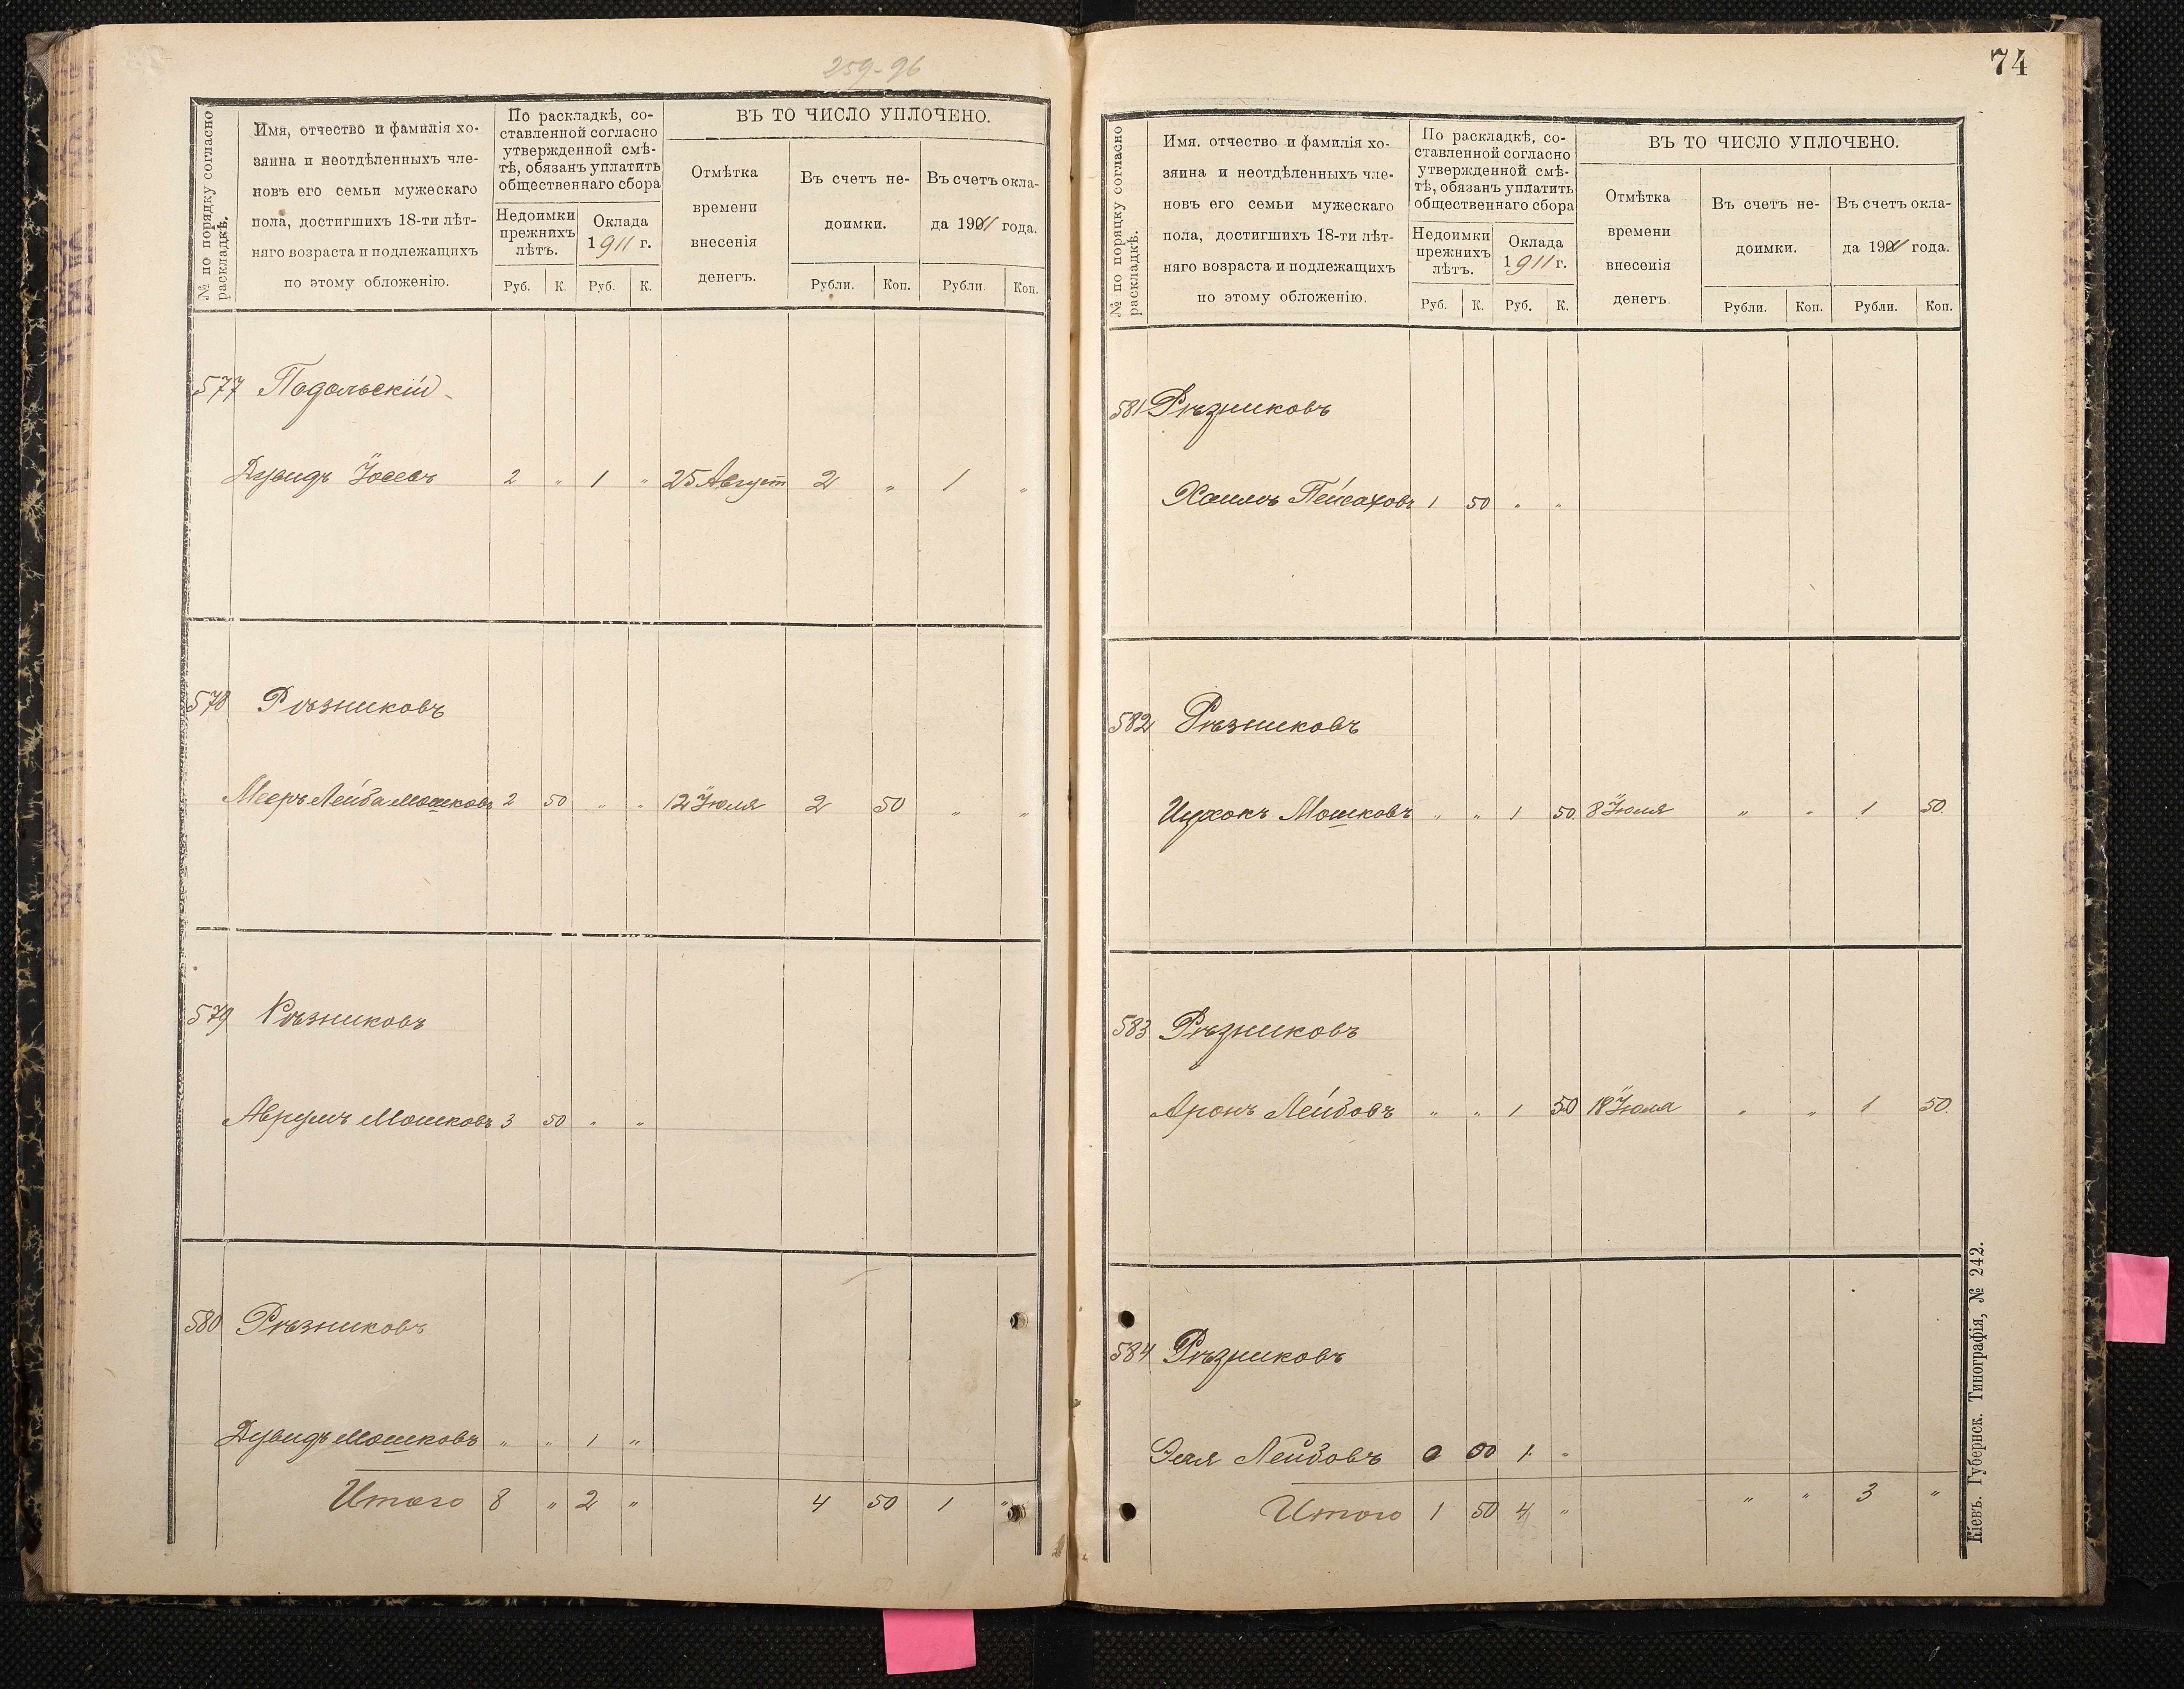 259-96
№ по порядку согласно раскладкѣ.
Имя, отчество и фамилія хо-
зяина и неотдѣленныхъ чле-
новъ его семьи мужескаго
пола, достигшихъ 18-ти лѣт-
няго возраста и подлежащихъ
по этому обложенію.
По раскладкѣ, со-
ставленной согласно
утвержденной смѣ-
тѣ, обязанъ уплатить
общественнаго сбора
Недоимки
прежнихъ
лѣтъ.
Оклада
1911 г.
Руб. К. Руб. К.
ВЪ ТО ЧИСЛО УПЛОЧЕНО.
Отмѣтка
времени
внесенія
денегъ.
Въ счетъ не-
доимки.
Въ счетъ окла-
да 1911 года.
Рубли. Коп. Рубли Коп.
577 Подольскій
Дувидъ Іосевъ 2 " 1 " 25 Август 2 " 1 "
578 Рѣзниковъ
Мееръ Лейба Мошковъ 2 50 " " 12 Іюля 2 50 " "
579 Рѣзниковъ
Аврумъ Мошковъ 3 50 " "
580 Рѣзниковъ
Дувидъ Мошковъ " " 1 "
Итого 8 " 2 " 4 50 1 "
74
№ по порядку согласно раскладкѣ.
Имя. отчество и фамилія хо-
зяина и неотдѣленныхъ чле-
новъ его семьи мужескаго
пола, достигшихъ 18-ти лѣт-
няго возраста и подлежащихъ
по этому обложенію.
По раскладкѣ, со-
ставленной согласно
утвержденной смѣ-
тѣ, обязанъ уплатить
общественнаго сбора
Недоимки
прежнихъ
лѣтъ.
Оклада
1911 г.
Руб. К. Руб. К.
ВЪ ТО ЧИСЛО УПЛОЧЕНО.
Отмѣтка
времени
внесенія
денегъ.
Въ счетъ не-
доимки.
Въ счетъ окла-
да 1911 года.
Рубли. Коп. Рубли. Коп.
581 Рѣзниковъ
Хаимъ Пейсаховъ 1 50 " "
582 Рѣзниковъ
Ицхокъ Мошковъ " " 1 50 8 Іюля " " 1 50.
583 Рѣзниковъ
Аронъ Лейбовъ " " 1 50 18 Іюля " " 1 50.
584 Рѣзниковъ
Эля Лейбовъ 0 00 1 "
Итого 1 50 4 " " " 3 "
Кіевъ. Губернск. Типографія, № 242.